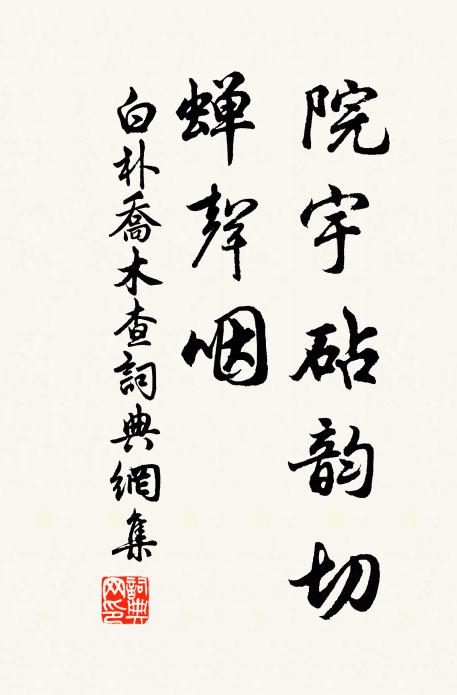 院宇砧韵切
蝉聲咽
白朴喬木查詞典網集
詞典网印